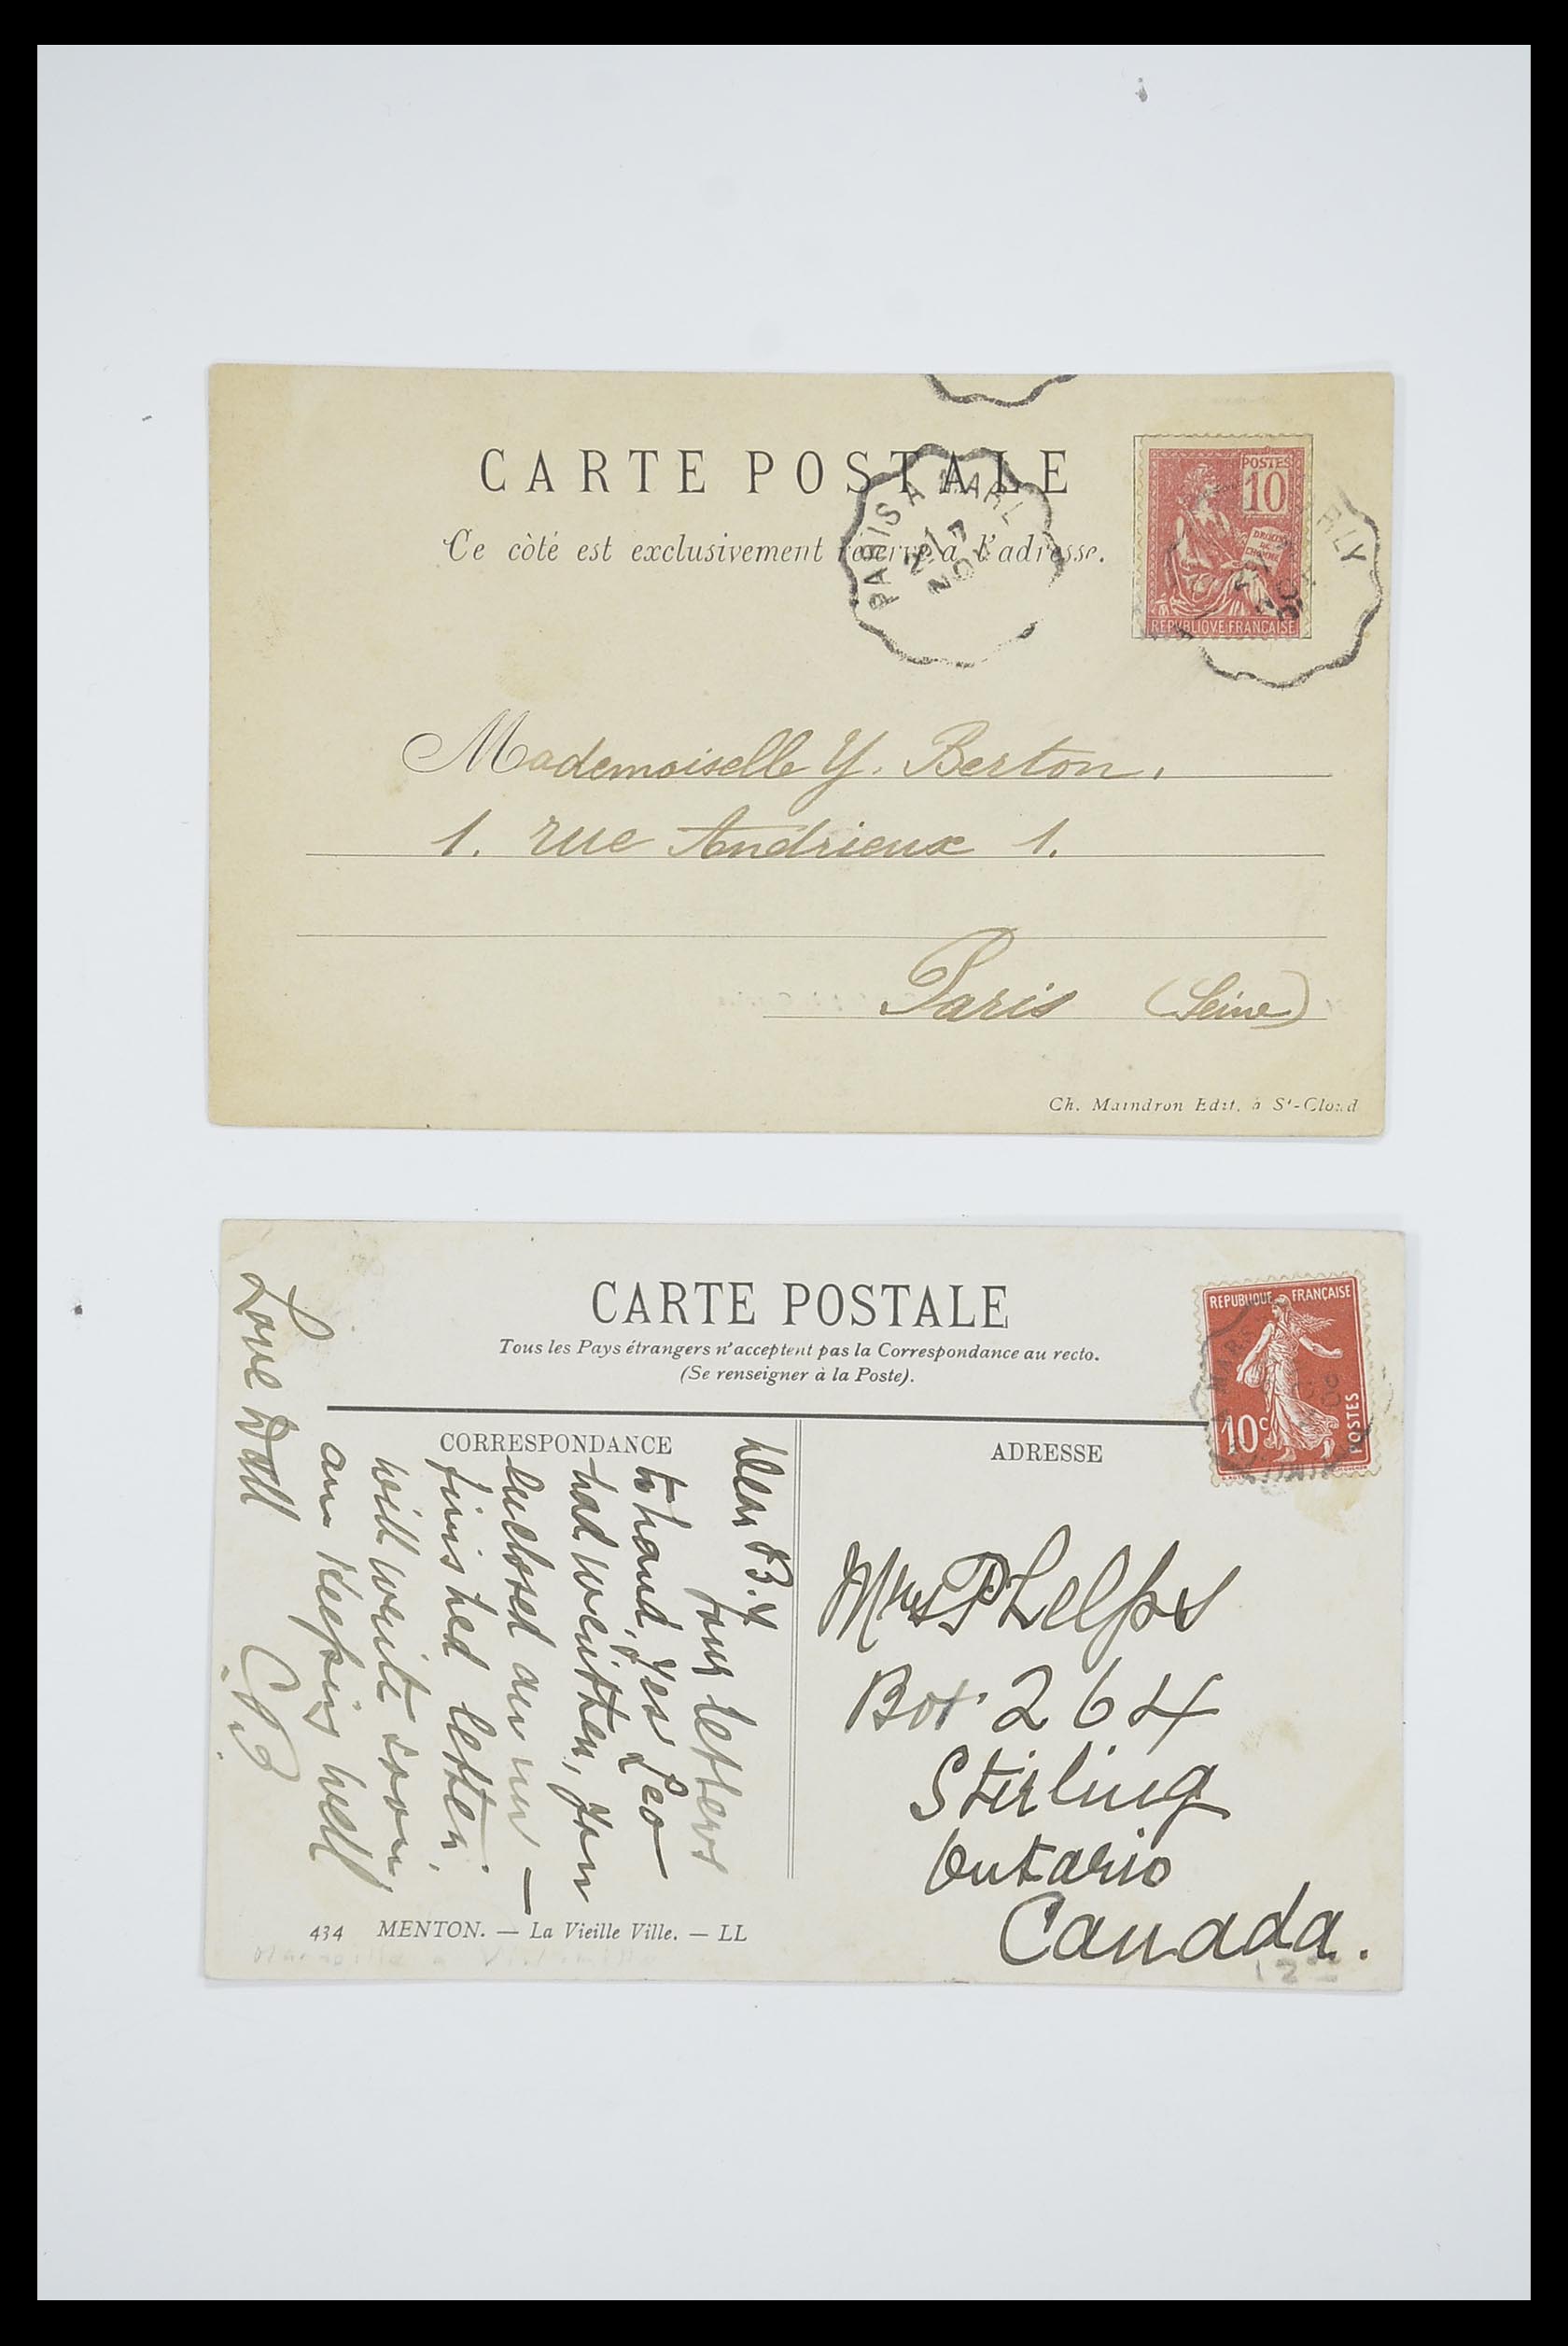 CARTE POSTALE
Ce côté est exclusivement réservé à l'adresse.
PARIS A MARL
NOV
POSTES
10
DROITS
DE
L'HOMME
REPUBLIQUE FRANÇAISE
RLY
Mademoiselle Y. Berton,
1. rue Andrieux 1.
Paris (Seine)
Ch. Maindron Edit. à St-Cloud
CARTE POSTALE
Tous les Pays étrangers n'acceptent pas la Correspondance au recto.
(Se renseigner à la Poste).
REPUBLIQUE FRANÇAISE
10c
POSTES
CORRESPONDANCE
Dear B.
Your letters
to hand, Yes Leo
had written, Your
Enclosed an un—
finished letter.
will write soon
am keeping well
Love to all
ADRESSE
Mrs PHelps
Box 264
Stirling
Ontario
Canada.
434 MENTON. — La Vieille Ville. — LL